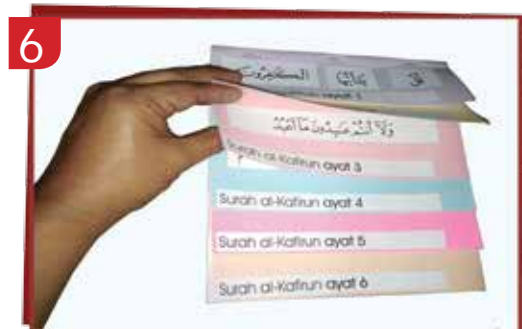 6
قُلْ يَٰٓأَيُّهَا ٱلْكَٰفِرُونَ
ayat 1
وَلَآ أَنتُمْ عَٰبِدُونَ مَآ أَعْبُدُ
Surah al-Kafirun ayat 3
Surah al-Kafirun ayat 4
Surah al-Kafirun ayat 5
Surah al-Kafirun ayat 6